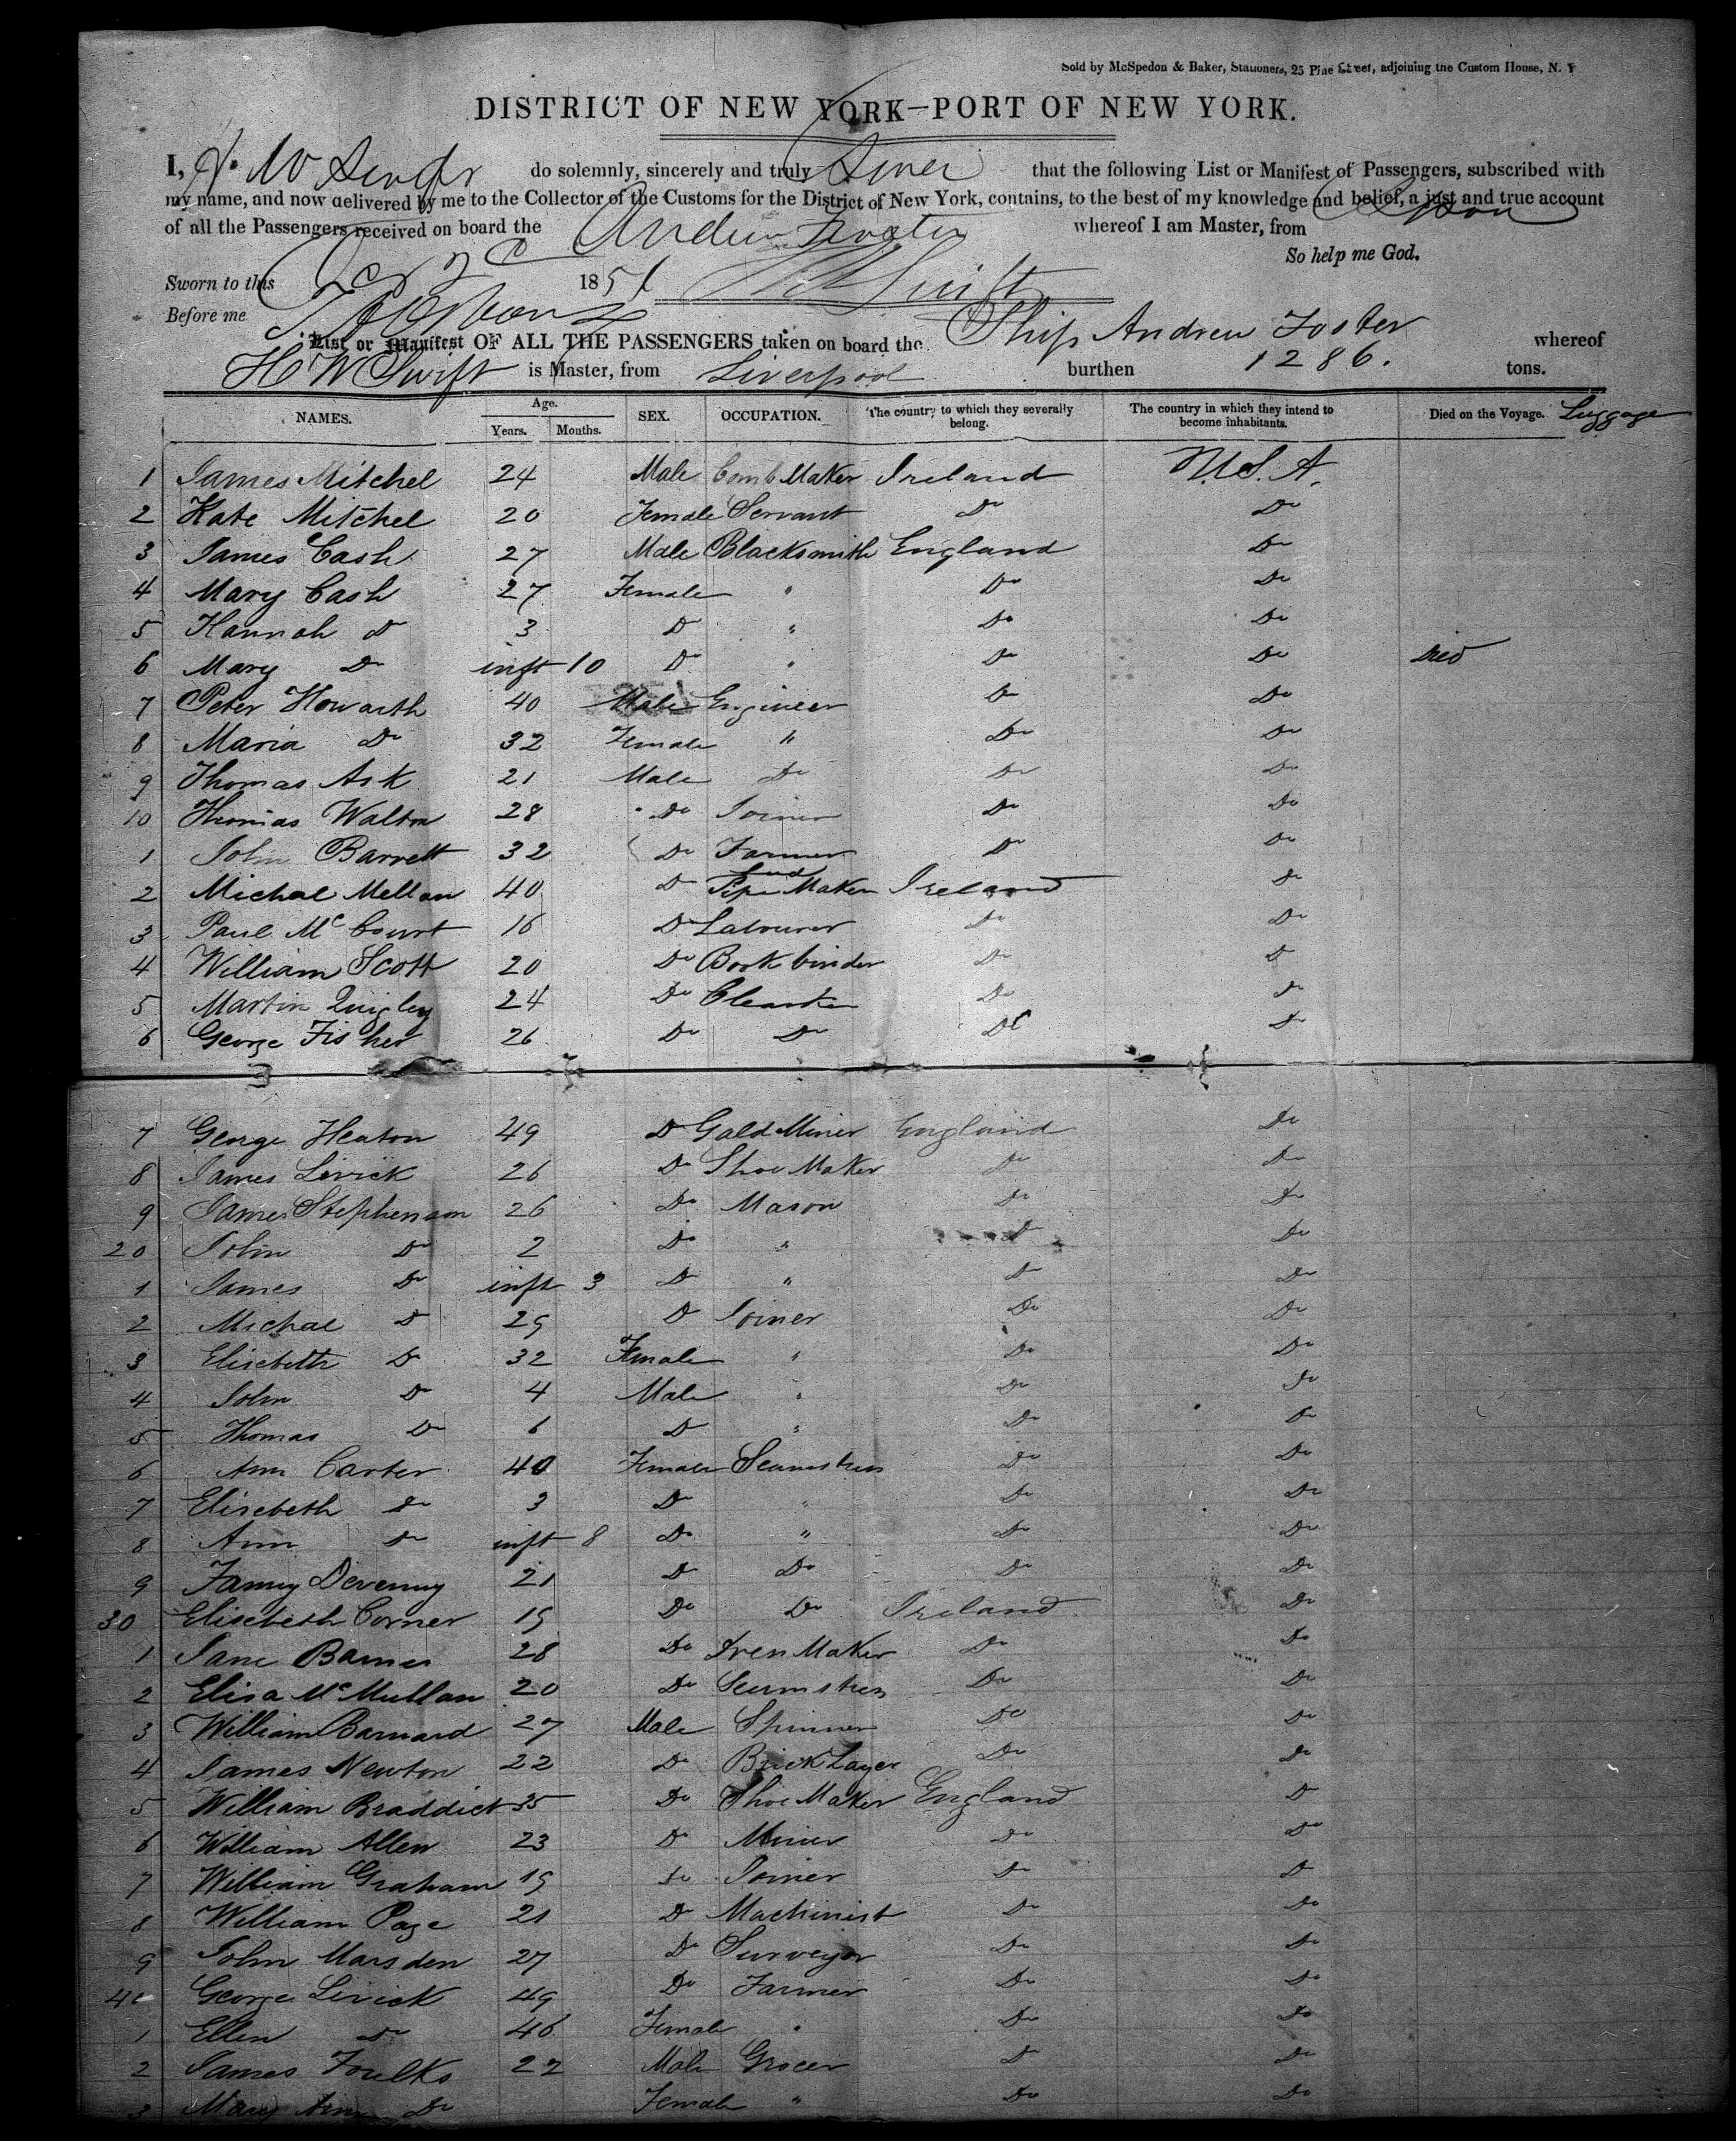 Sold by McSpedon & Baker, Stationers, 25 Pine Street, adjoining the Custom House, N. Y
DISTRICT OF NEW YORK—PORT OF NEW YORK.
I, do solemnly, sincerely and truly that the following List or Manifest of Passengers, subscribed with
my name, and now delivered by me to the Collector of the Customs for the District of New York, contains, to the best of my knowledge and belief, a just and true account
of all the Passengers received on board the Andrew Foster whereof I am Master, from
So help me God.
Sworn to this 1851 Swift
Before me
List or Manifest OF ALL THE PASSENGERS taken on board the Ship Andrew Foster whereof
H W Swift is Master, from Liverpool burthen 1286. tons.
NAMES. Age. Years. Months. SEX. OCCUPATION. The country to which they severally belong. The country in which they intend to become inhabitants. Died on the Voyage. Luggage
1 James Mitchel 24 Male Comb Maker Ireland U.S.A.
2 Kate Mitchel 20 Female Servant Do Do
3 James Cash 27 Male Blacksmith England Do
4 Mary Cash 27 Female " Do Do
5 Hannah Do 3 Do " Do Do
6 Mary Do inft 10 Do " Do Do Died
7 Peter Howarth 40 Male Engineer Do Do
8 Maria Do 32 Female " Do Do
9 Thomas Ask 21 Male Do Do Do
10 Thomas Walton 28 Do Joiner Do Do
1 John Barrett 32 Do Farmer Do Do
2 Michal Mellan 40 Do Pipe Maker Ireland Do
3 Paul McCourt 16 Do Labourer Do Do
4 William Scott 20 Do Bookbinder Do Do
5 Martin Quigley 24 Do Clearke Do Do
6 George Fisher 26 Do Do Do Do
7 George Heaton 49 Do Gold Miner England Do
8 James Livick 26 Do Shoe Maker Do Do
9 James Stephenson 26 Do Mason Do Do
20 John Do 2 Do " Do Do
1 James Do inft 3 Do " Do Do
2 Michae Do 29 Do Joiner Do Do
3 Elisebeth Do 32 Female " Do Do
4 John Do 4 Male " Do Do
5 Thomas Do 6 Do " Do Do
6 Ann Carter 40 Female Seamstress Do Do
7 Elisebeth Do 3 Do " Do Do
8 Ann Do inft 8 Do " Do Do
9 Fanny Devenny 21 Do Do Do Do
30 Elisebeth Corner 19 Do Do Ireland Do
1 Jane Barnes 28 Do Dres Maker Do Do
2 Elisa McMullan 20 Do Seamstress Do Do
3 William Barnard 27 Male Spinner Do Do
4 James Newton 22 Do Brick Layer Do Do
5 William Braddict 35 Do Shoe Maker England Do
6 William Allen 23 Do Miner Do Do
7 William Graham 19 Do Joiner Do Do
8 William Page 21 Do Machinist Do Do
9 John Marsden 27 Do Surveyor Do Do
40 George Livick 49 Do Farmer Do Do
1 Ellen Do 46 Female " Do Do
2 James Foulks 22 Male Grocer Do Do
3 Mary Ann Do Female " Do Do